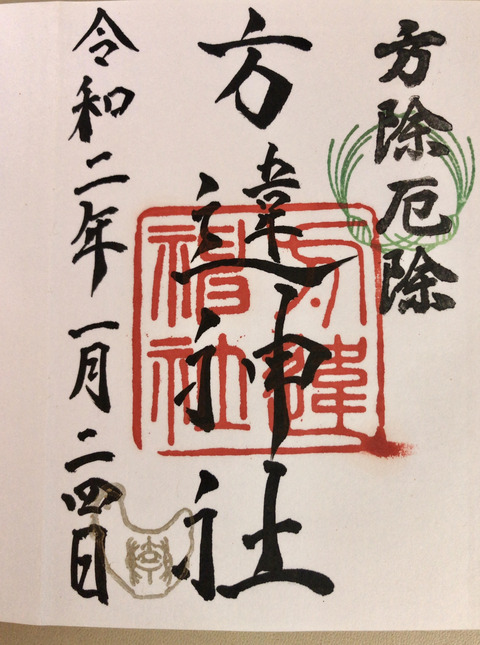 方除厄除
方違神社
方違神社
令和二年一月二四日